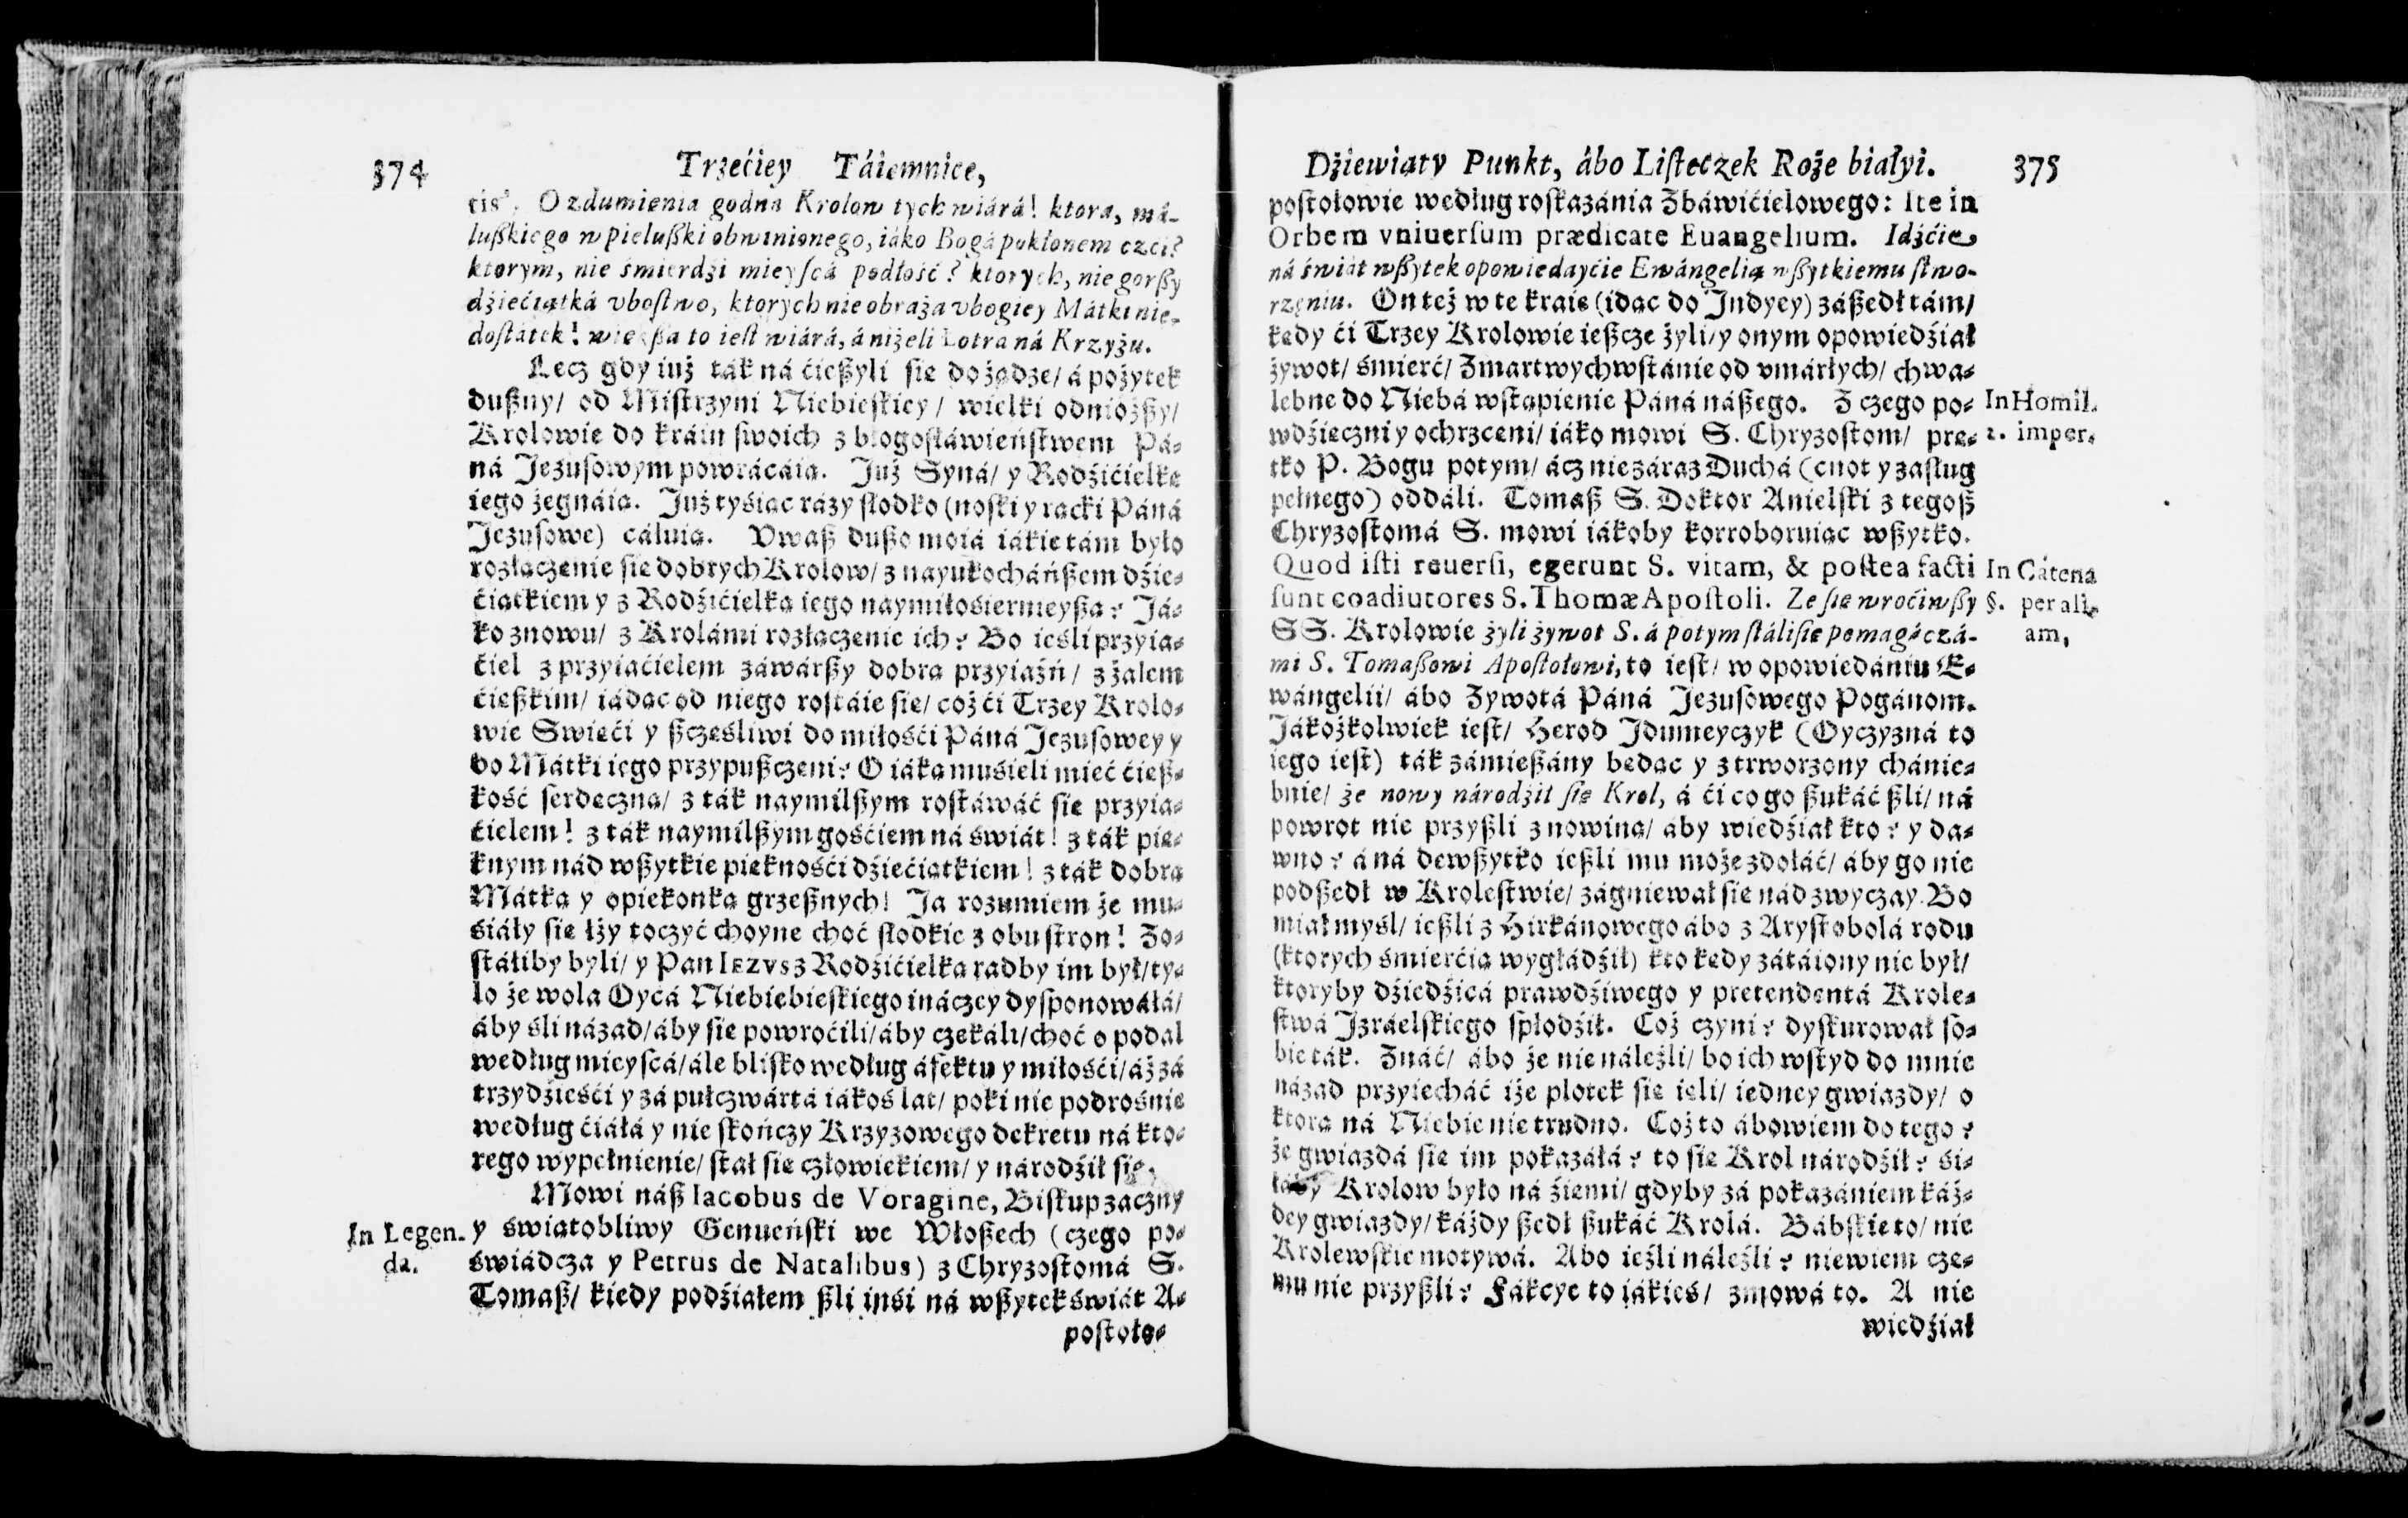 374 Trzećiey Táiemnice,
tis. O zdumienia godna Krolow tych wiárá! ktora, má-
lußkiego w pielußki obwinionego, iáko Bogá pokłonem czći?
ktorym, nie śmierdźi mieyſcá podłość? ktorych, nie gorßy
dźiećiątká vboſtwo, ktorych nie obraża vbogiey Mátki nie-
doſtátek! więkßa to ieſt wiárá, á niżeli Łotra ná Krzyżu.
Lecz gdy iuż ták ná ćießyli ſie do żądze/ á pożytek
dußny/ od Miſtrzyni Niebieſkiey/ wielki odniożßy/
Krolowie do kráin ſwoich z błogoſłáwieńſtwem Pá-
ná Jezuſowym powrácáią. Już Syná/ y Rodźićielkę
iego żegnáią. Już tyśiąc rázy ſłodko (noſki y rącki Páná
Jezuſowe) cáłuią. Vważ dußo moiá iákie tám było
rozłączenie ſie dobrych Krolow/ z nayukochánßem dźie-
ćiątkiem y z Rodźićielką iego naymiłośiernieyßą? Já-
ko znowu/ z Krolámi rozłączenie ich? Bo ieśli przyia-
ćiel z przyiaćielem záwárßy dobrą przyiaźń/ z żalem
ćießkim/ iádąc od niego roſtáie ſie/ coż ći Trzey Krolo-
wie Swięći y ßczęśliwi do miłośći Páná Jezuſowey y
do Mátki iego przypußczeni? O iáką muśieli mieć ćięß-
kość ſerdeczną/ z ták naymilßym roſtáwáć ſie przyia-
ćielem! z ták naymilßym gośćiem ná świát! z ták pię-
knym nád wßytkie pięknośći dźiećiątkiem! z ták dobrą
Mátką y opiekonką grzeßnych! Ja rozumiem że mu-
śiáły ſie łzy toczyć choyne choć ſłodkie z obu ſtron! Zo-
ſtáliby byli/ y Pan IEZVS z Rodźićielką radby im był/ ty-
lo że wola Oycá Niebiebieſkiego ináczey dyſponowáłá/
áby śli názad/ áby ſie powroćili/ áby czekáli/ choć o podal
według mieyſcá/ ále bliſko według áfektu y miłośći/ áż zá
trzydźieśći y zá pułczwártá iákoś lat/ poki nie podrośnie
według ćiáłá y nie ſkończy Krzyzowego dekretu ná kto-
rego wypełnienie/ ſtał ſie człowiekiem/ y národźił ſię.
Mowi náß Iacobus de Voragine, Biſkup zaczny
In Legen-
da.
y świątobliwy Genueńſki we Włoßech (czego po-
świádcza y Petrus de Natalibus) z Chryzoſtomá S.
Tomaß/ kiedy podźiałem ßli inśi ná wßytek świát A-
poſtoło-
Dźiewiąty Punkt, ábo Liſteczek Roże białyi. 375
poſtołowie według roſkazánia Zbáwićielowego: Ite in
Orbem vniuerſum prædicate Euangelium. Idźćie
ná świát wßytek opowiedayćie Ewángelią wßytkiemu ſtwo-
rzęniu. On też w te kraie (idąc do Jndyey) záßedł tám/
kędy ći Trzey Krolowie ießcze żyli/ y onym opowiedźiał
żywot/ śmierć/ Zmartwychwſtánie od vmárłych/ chwa-
lebne do Niebá wſtąpienie Páná náßego. Z czego po-
wdźięczni y ochrzceni/ iáko mowi S. Chryzoſtom/ prę-
In Homil.
2. imper.
tko P. Bogu potym/ ácz nie záraz Duchá (cnot y zaſług
pełnego) oddáli. Tomaß S. Doktor Anielſki z tegoß
Chryzoſtomá S. mowi iákoby korroboruiąc wßytko.
Quod iſti reuerſi, egerunt S. vitam, & poſtea facti
ſunt coadiutores S. Thomæ Apoſtoli. Ze ſie wroćiwßy
In Cátena
§. per ali-
am,
SS. Krolowie żyli żywot S. á potym ſtáli ſie pomagáczá-
mi S. Tomaßowi Apoſtołowi, to ieſt/ w opowiedániu E-
wángelii/ ábo Zywotá Páná Jezuſowego Pogánom.
Jákożkolwiek ieſt/ Herod Jdumeyczyk (Oyczyzná to
iego ieſt) ták zámießány będąc y ztrworzony chánie-
bnie/ że nowy národźił ſię Krol, á ći co go ßukáć ßli/ ná
powrot nie przyßli z nowiną/ áby wiedźiał kto? y da-
wno? á ná dewßytko ießli mu może zdołáć/ áby go nie
podßedł w Kroleſtwie/ zágniewał ſie nád zwyczay. Bo
miał myśl/ ießli z Hirkánowego ábo z Aryſtobolá rodu
(ktorych śmierćią wygłádźił) kto kędy zátáiony nie był/
ktoryby dźiedźicá prawdźiwego y pretendentá Krole-
ſtwá Jzráelſkiego ſpłodźił. Coż czyni? dyſkurował ſo-
bie ták. Znáć/ ábo że nie náleźli/ bo ich wſtyd do mnie
názad przyiecháć iże plotek ſie ięli/ iedney gwiazdy/ o
ktorą ná Niebie nie trudno. Coż to ábowiem do tego?
że gwiazdá ſie im pokazáłá? to ſie Krol národźił? śi-
łáby Krolow było ná źiemi/ gdyby zá pokazániem káż-
dey gwiazdy/ káżdy ßedł ßukáć Krolá. Bábſkie to/ nie
Krolewſkie motywá. Abo ieźli náleźli? niewiem cze-
mu nie przyßli? Fákcye to iákieś/ zmowá to. A nie
wiedźiał